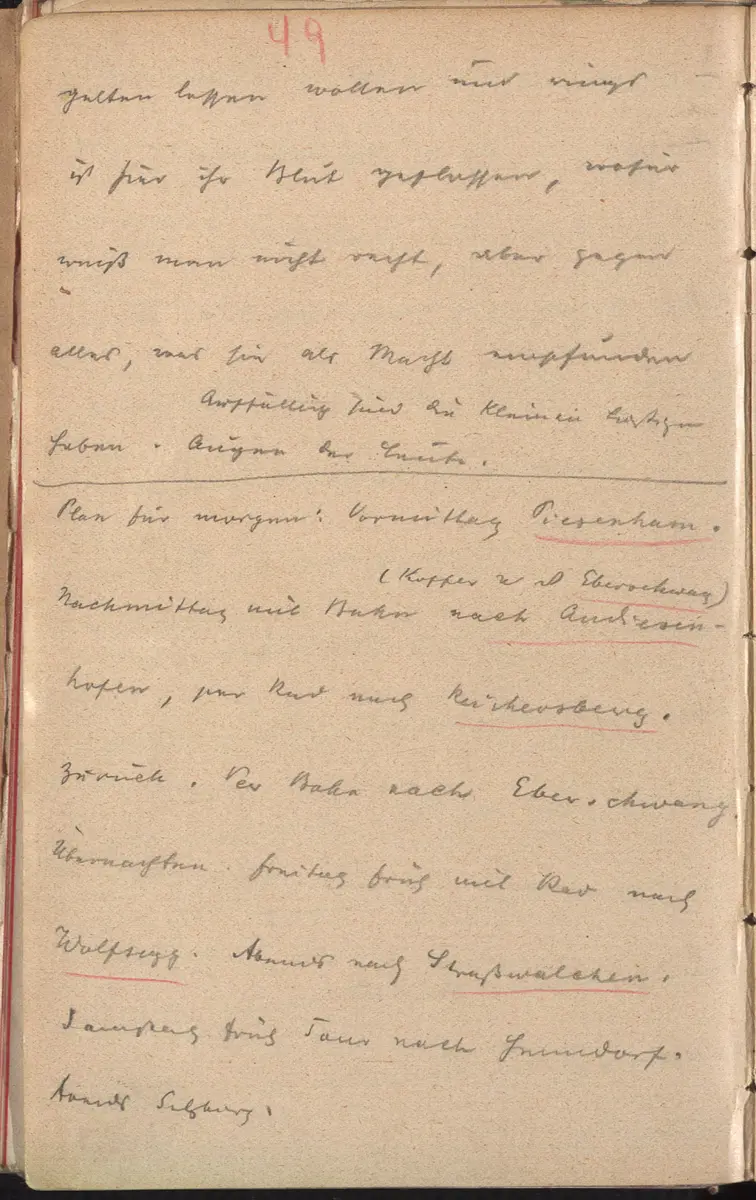 49
gelten lassen wollen und rings
ist hier ihr Blut geflossen, wofür
weiß man nicht recht, aber gegen
alles, was sie als Macht empfunden
Auffällig sind die kleinen lustigen
haben. Augen der Leute.
Plan für morgen: Vormittag Piesenham.
(Koffer Eberschwang)
Nachmittag mit Bahn nach Andiesen-
hofen, per Rad nach Reichersberg.
Zurück. Per Bahn nach Eberschwang
Übernachten. Freitag früh mit Rad nach
Wolfsegg. Abends nach Straßwalchen.
Samstag früh Tour nach Henndorf.
Abends Salzburg.